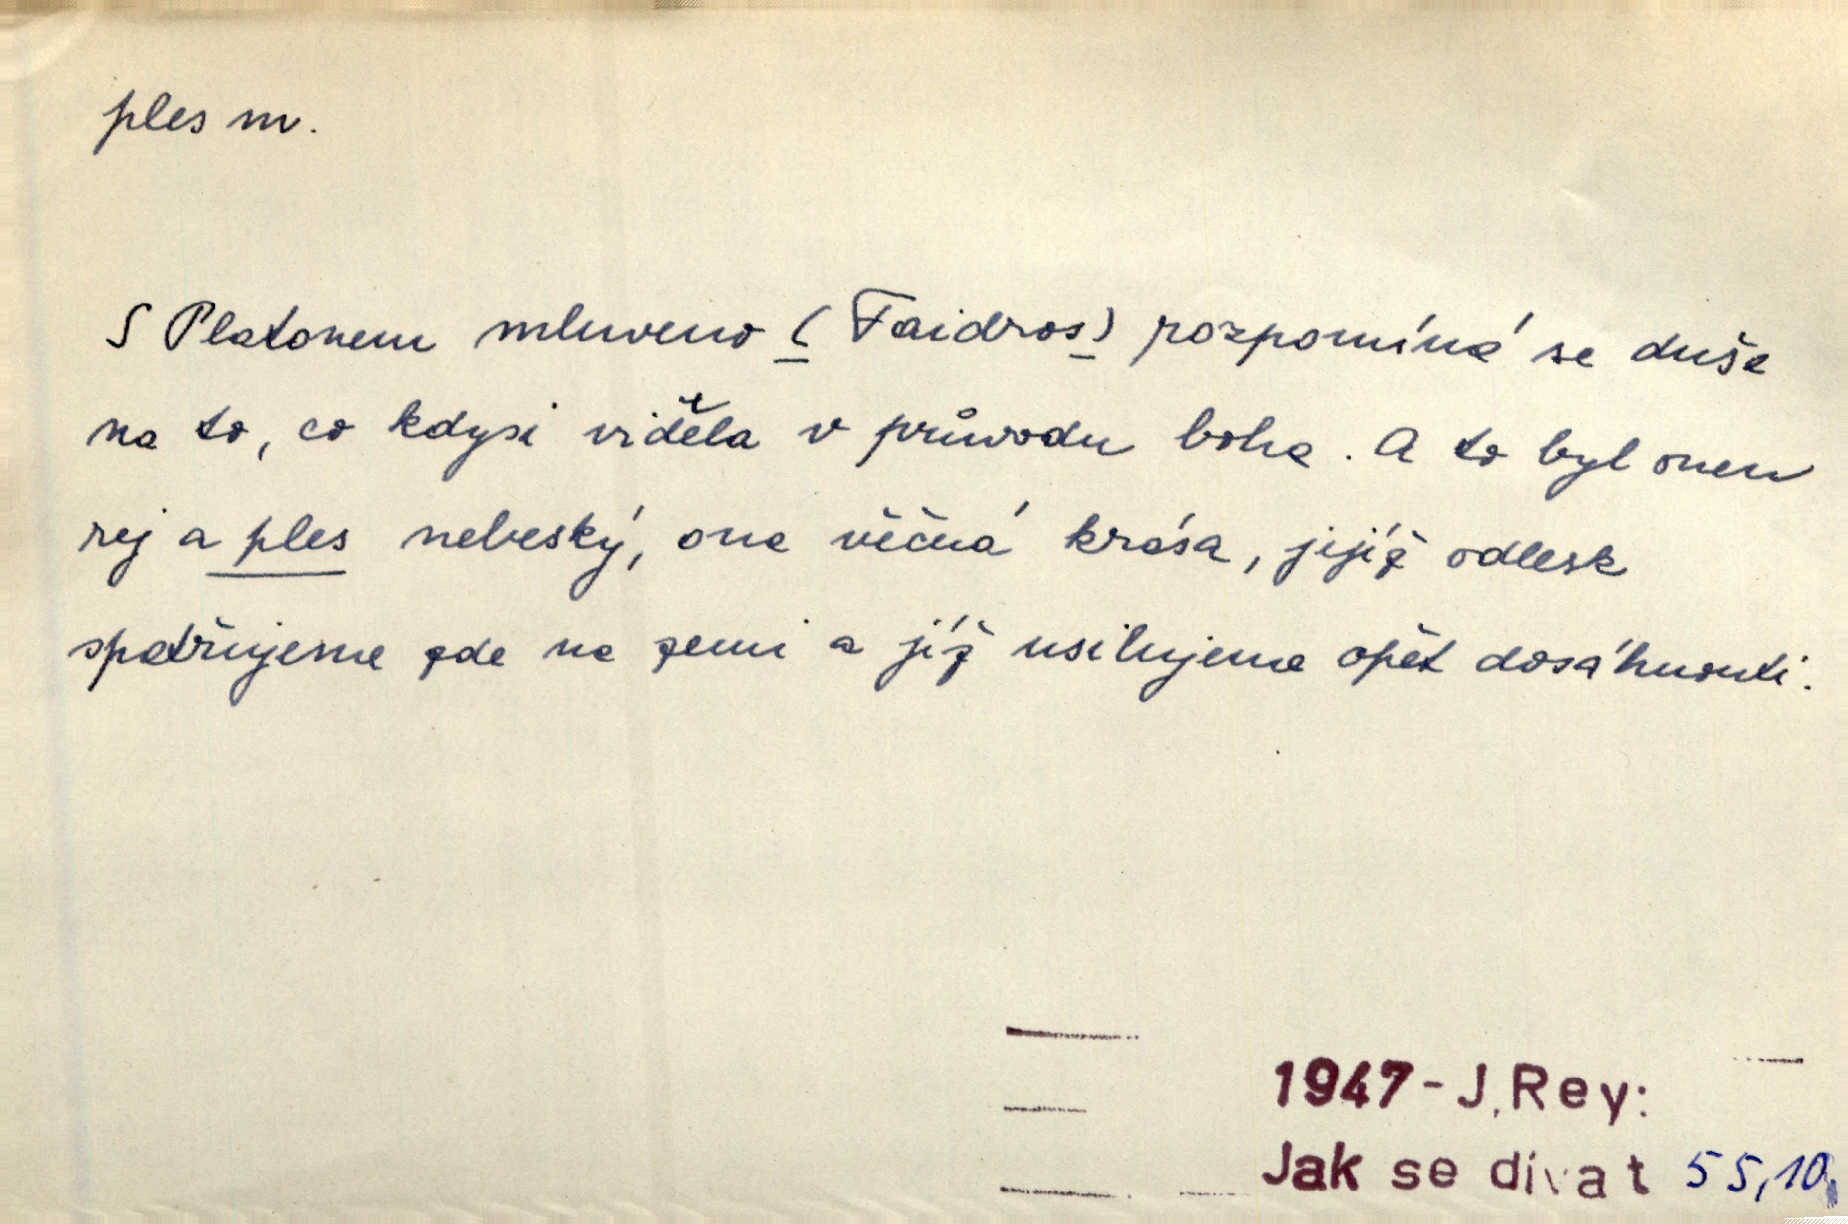 ples m.
S Platonem mluveno (Faidros) rozpomíná se duše
na to, co kdysi viděla v průvodu boha. A to byl onen
rej a ples nebeský, ona věčná krása, jejíž odlesk
spatřujeme zde na zemi a jíž usilujeme opět dosáhnouti.
1947-J.Rey:
Jak se dívat 55,10